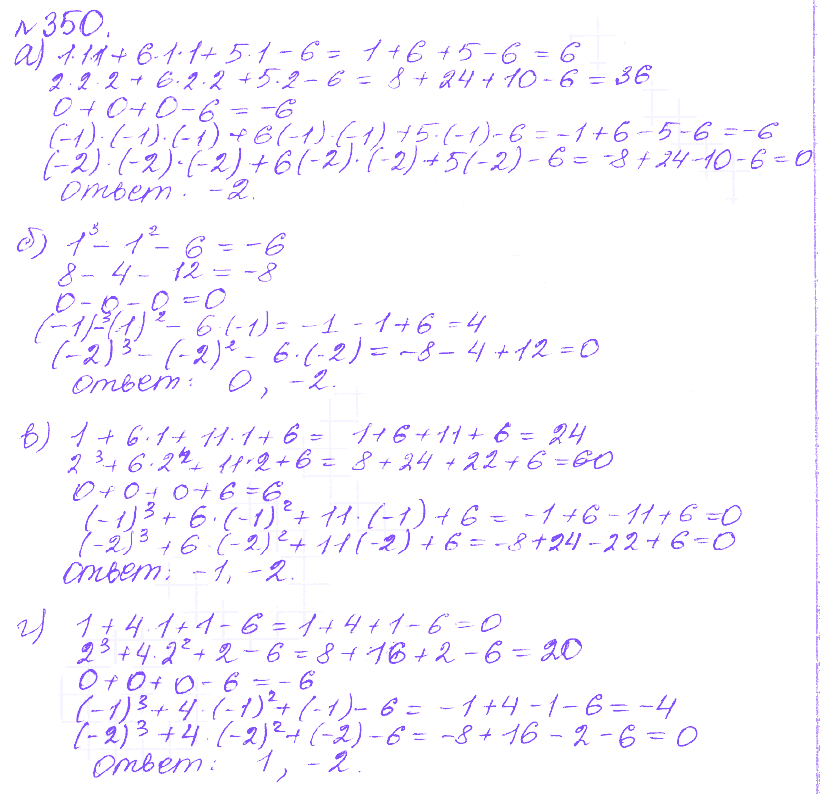 №350.
а) 1·1·1 + 6·1·1 + 5·1 - 6 = 1 + 6 + 5 - 6 = 6
2·2·2 + 6·2·2 + 5·2 - 6 = 8 + 24 + 10 - 6 = 36
0 + 0 + 0 - 6 = -6
(-1)·(-1)·(-1) + 6(-1)·(-1) + 5·(-1) - 6 = -1 + 6 - 5 - 6 = -6
(-2)·(-2)·(-2) + 6(-2)·(-2) + 5(-2) - 6 = -8 + 24 - 10 - 6 = 0
Ответ: -2.
б) 1³ - 1² - 6 = -6
8 - 4 - 12 = -8
0 - 0 - 0 = 0
(-1)³ - (1)² - 6·(-1) = -1 - 1 + 6 = 4
(-2)³ - (-2)² - 6·(-2) = -8 - 4 + 12 = 0
Ответ: 0, -2.
в) 1 + 6·1 + 11·1 + 6 = 1 + 6 + 11 + 6 = 24
2³ + 6·2² + 11·2 + 6 = 8 + 24 + 22 + 6 = 60
0 + 0 + 0 + 6 = 6
(-1)³ + 6·(-1)² + 11·(-1) + 6 = -1 + 6 - 11 + 6 = 0
(-2)³ + 6·(-2)² + 11(-2) + 6 = -8 + 24 - 22 + 6 = 0
Ответ: -1, -2.
г) 1 + 4·1 + 1 - 6 = 1 + 4 + 1 - 6 = 0
2³ + 4·2² + 2 - 6 = 8 + 16 + 2 - 6 = 20
0 + 0 + 0 - 6 = -6
(-1)³ + 4·(-1)² + (-1) - 6 = -1 + 4 - 1 - 6 = -4
(-2)³ + 4·(-2)² + (-2) - 6 = -8 + 16 - 2 - 6 = 0
Ответ: 1, -2.